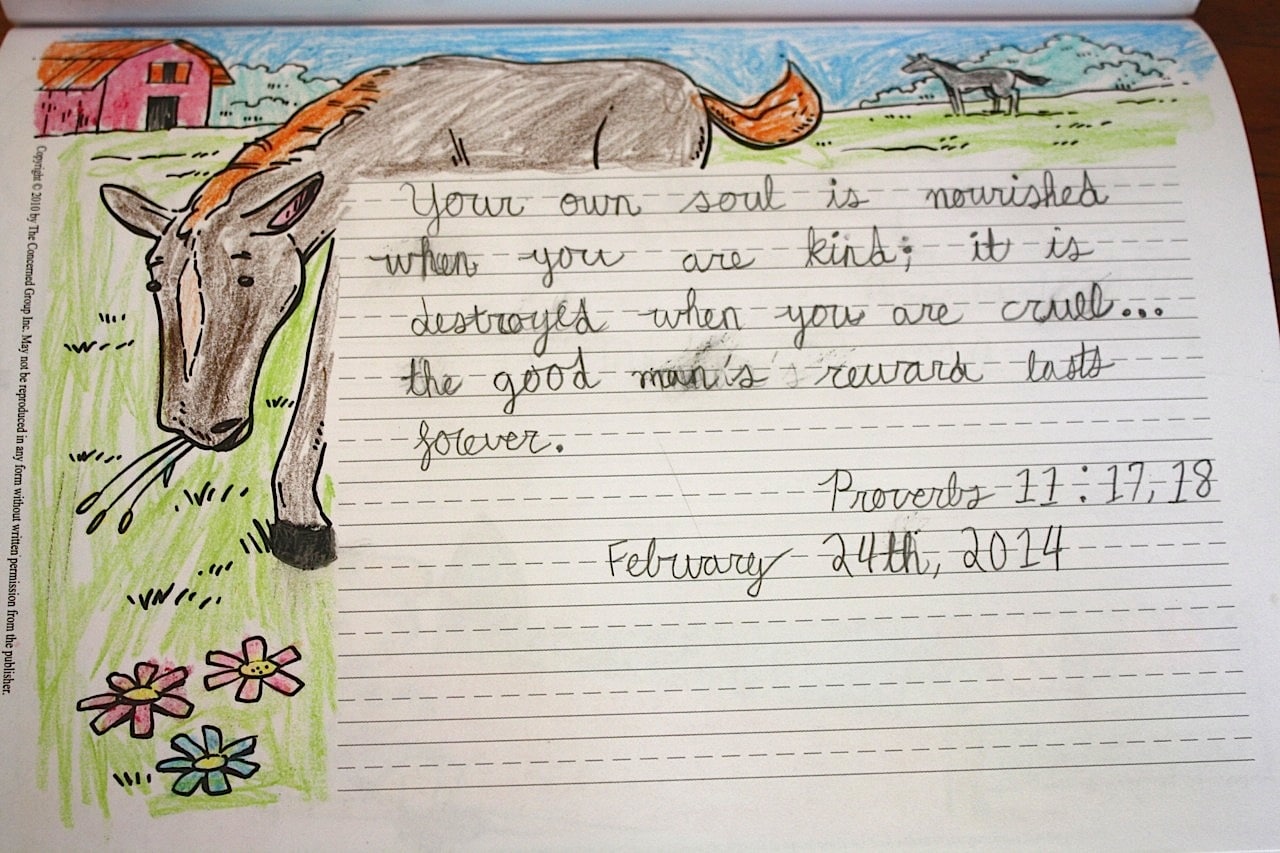 Your own soul is nourished
when you are kind; it is
destroyed when you are cruel...
the good man's reward lasts
forever.
Proverbs 11:17,18
February 24th, 2014
Copyright © 2010 by The Concerned Group Inc. May not be reproduced in any form without written permission from the publisher.